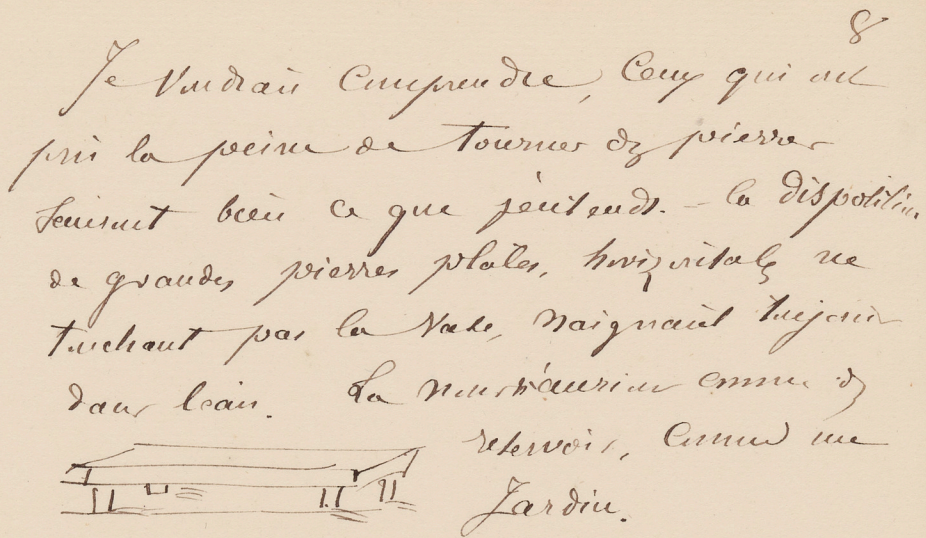 8
Je voudrais comprendre, Ceux qui ont
pris la peine de tourner des pierres
sauront bien ce que j'entends. - la disposition
de grandes pierres plates, horizontales ne
touchant pas la vase, baignant toujours
dans l'eau. La nous aurions comme des
reservoirs, comme un
Jardin.